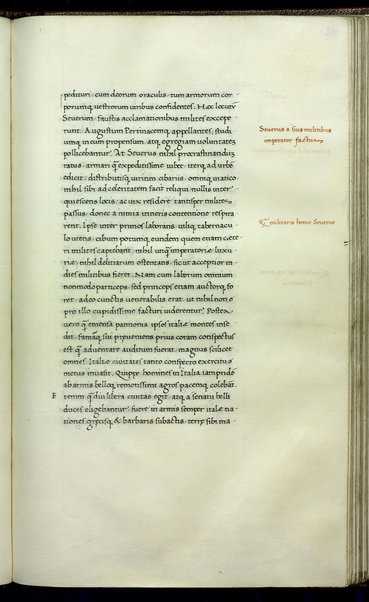 pedituri, cum deorum oraculis, tum armorum cor
porumq, vestrorum viribus confidentes. Hæc locutū
Severum, faustis acclamationibus milites excepe
runt, Augustum Pertinacemq, appellantes, studi
umq in eum propensum, atq egregiam voluntatē
pollicebantur. At Severus nihil procrastinandū
ratus, armari q̃ expeditissime iubet, iterq ad urbē
edicit, distributisq, viritim cibariis, omniq, viatico
nihil sibi ad celeritatem facit reliqui, nullis inter
quiescens locis, ac vix residere tantisper milites
passus, donec a nimia itineris contentione respira
rent. Ipse inter primos laborans, vilíq, tabernacu
lo utens, cibum potumq, eundem quem etiam cæte
ri milites capiebant, nihil unq̃ imperatoriæ luxu
riæ, nihil delitiarum ostentans, sic ut acceptior in
dies militibus fieret. Nam cum laborum omnium
non modo particeps, sed princeps etiam auctorq, fo
ret, adeo cunctis venerabilis erat, ut nihil non ꝓ
pro illo cupidissime facturi viderentur. Postea
vero q̃ emensa pannonia ipsos italiæ montes inse
dit, famāq, sui preveniens prius coram conspectus
est q̃ adventare auditum fuerat, magnus scilicet
omnes Italiæ civitates tanto conspecto exercitu
metus invasit. Quippe homines in Italia iampridē
ab armis bellisq, remotissimi agros pacemq, colebāt
E tenim q̃ diu libera civitas egit, atq, a senatu belli
duces eligebantur, fuere in armis semper italæ na
tiones, gręcisq, & barbaris subactis, terrę sibi ma-
Severus a suis militibus
imperator factus
militaris homo Severus